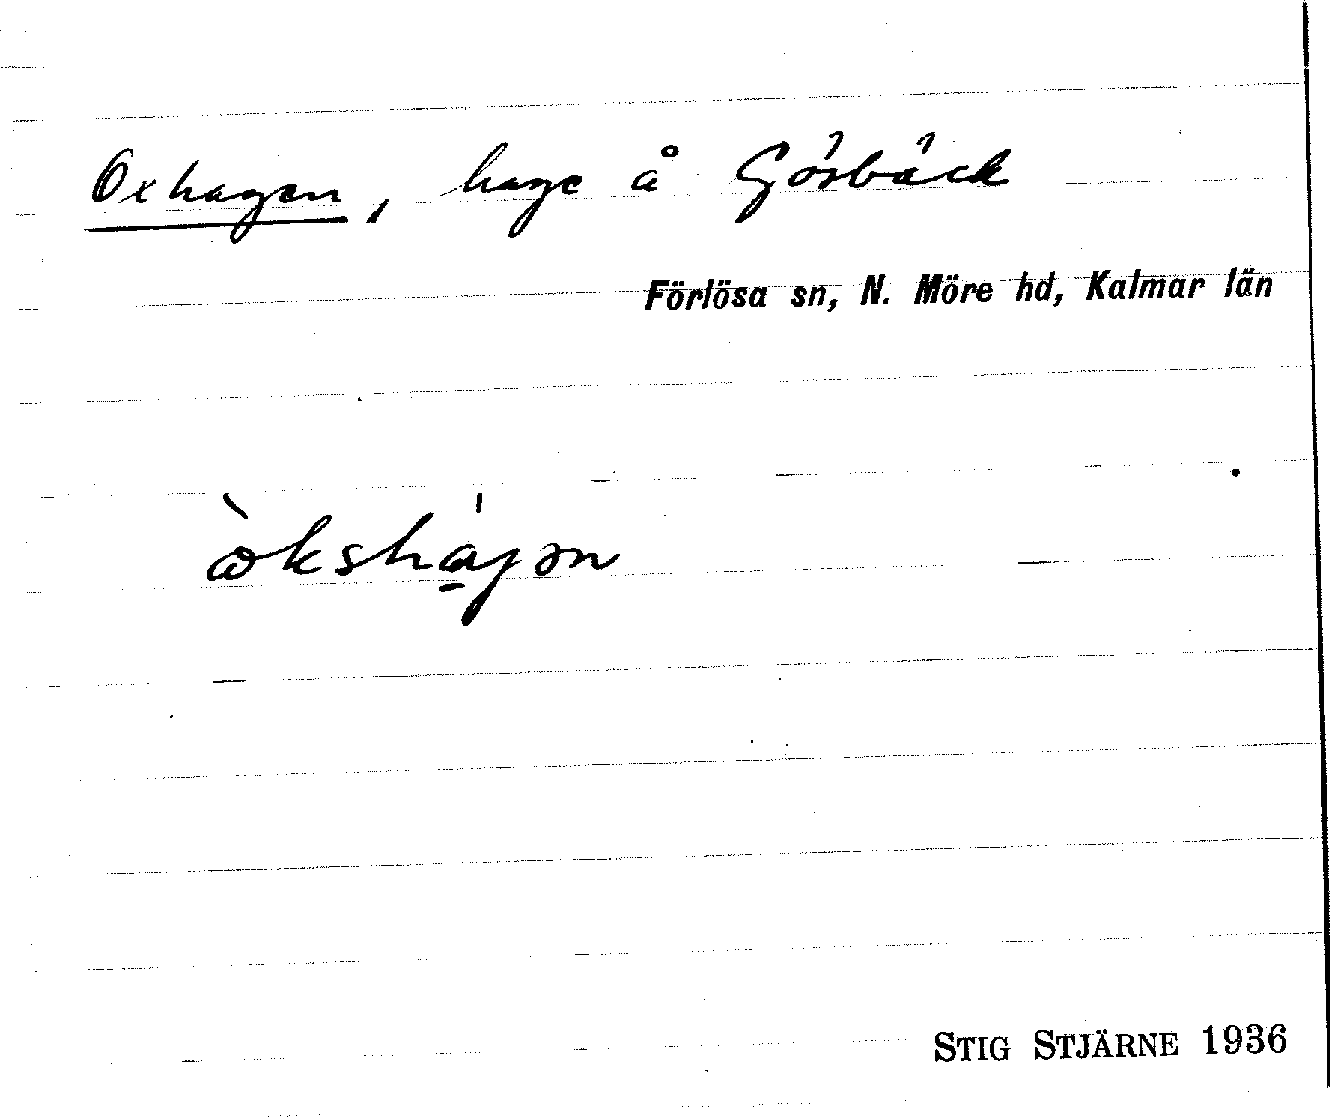 Oxhagen, hage å Görbäck
Förlösa sn, N. Möre hd, Kalmar län
STIG STJÄRNE 1936